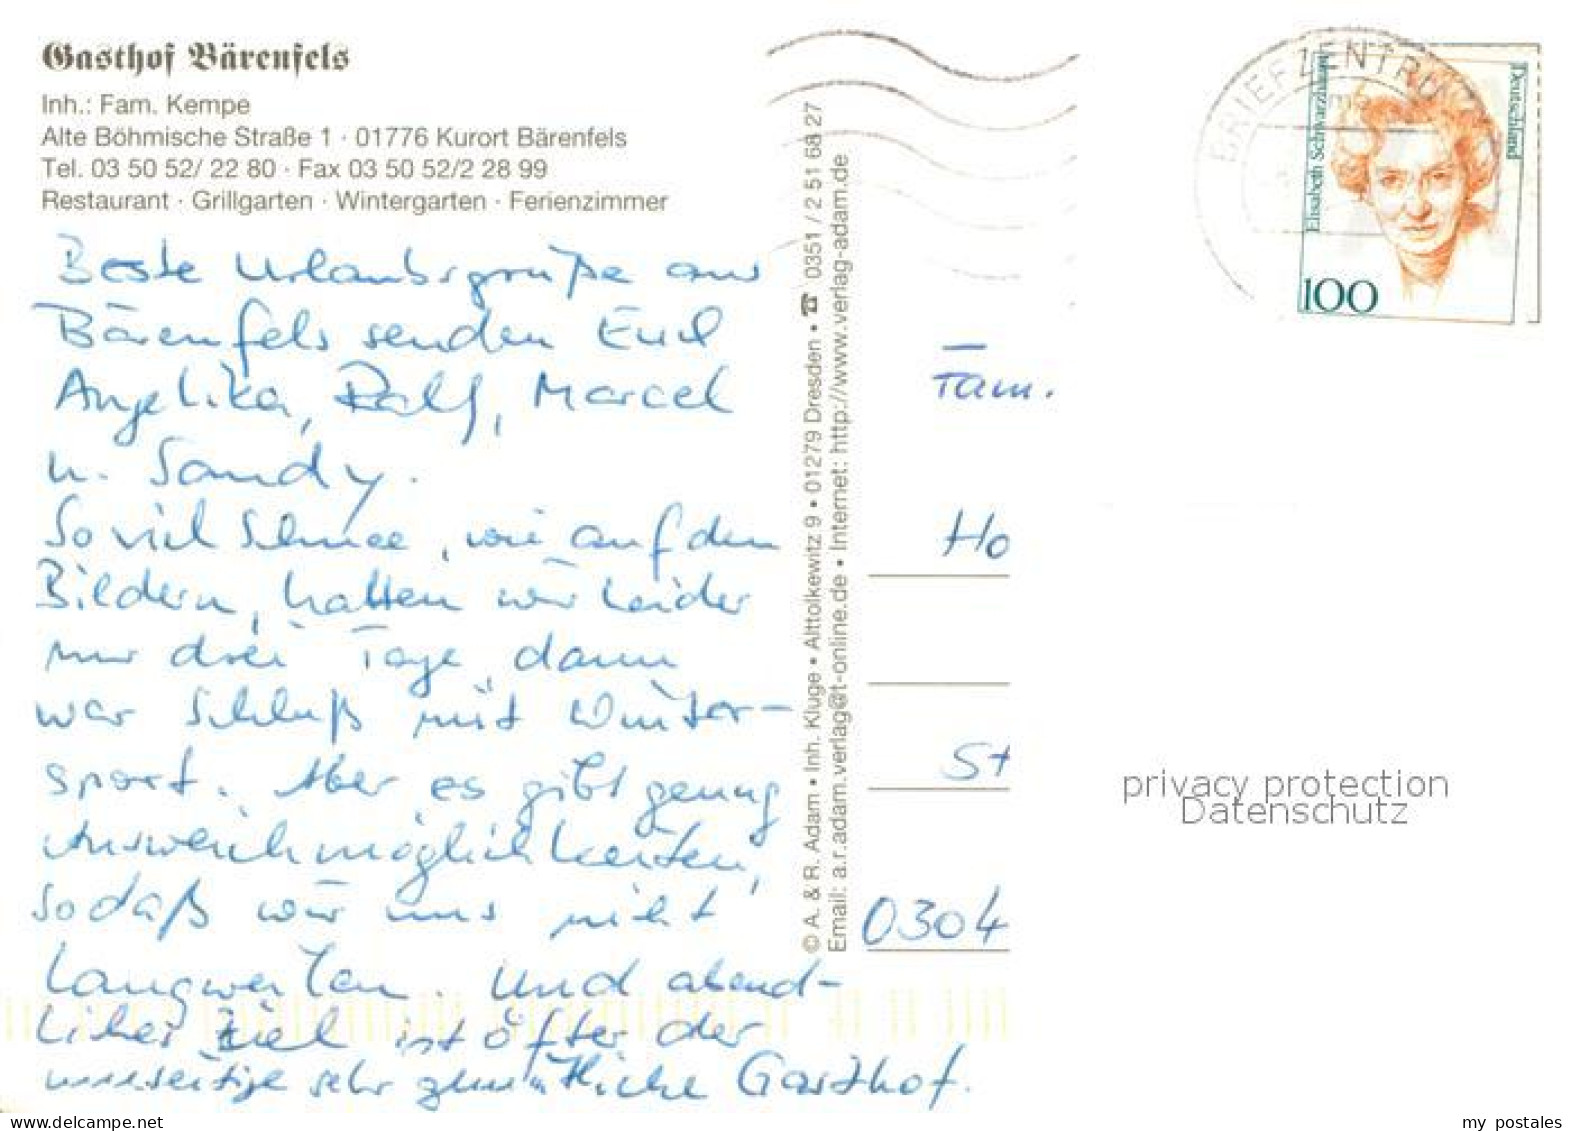 Gasthof Bärenfels
Inh.: Fam. Kempe
Alte Böhmische Straße 1 · 01776 Kurort Bärenfels
Tel. 03 50 52/ 22 80 · Fax 03 50 52/2 28 99
Restaurant · Grillgarten · Wintergarten · Ferienzimmer
Beste Urlaubsgrüße aus
Bärenfels senden Euch
Angelika, Ralf, Marcel
u. Sandy.
So viel Schnee, wie auf den
Bildern, hatten wir leider
nur drei Tage, dann
war Schluß mit Winter-
sport. Aber es gibt genug
Ausweichmöglichkeiten,
sodaß wir uns nicht
langweilen. Und abend-
liches Ziel ist öfter der
umseitige sehr gemütliche Gasthof.
© A. & R. Adam • Inh. Kluge • Alttolkewitz 9 • 01279 Dresden • ☎ 0351 / 2 51 68 27
Email: a.r.adam.verlag@t-online.de • Internet: http://www.verlag-adam.de
BRIEFZENTRU
Elisabeth Schwarzhaupt
Deutschland
100
Fam.
Ho
St
0304
privacy protection
Datenschutz
delcampe.net
my_postales